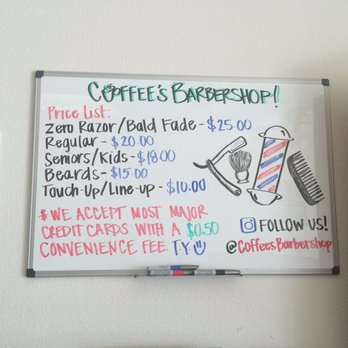 COFFEE'S BARBERSHOP!
Price List:
Zero Razor/Bald Fade - $25.00
Regular - $20.00
Seniors/Kids - $18.00
Beards - $15.00
Touch-Up/Line-up - $10.00
* WE ACCEPT MOST MAJOR
CREDIT CARDS WITH A $0.50
CONVENIENCE FEE. T.Y.
FOLLOW US!
@CoffeesBarbershop